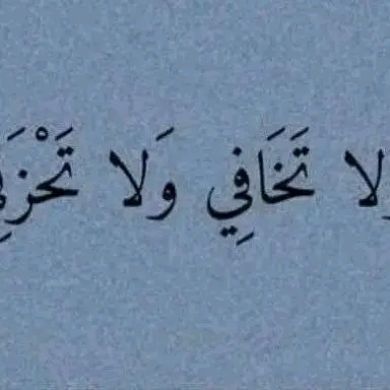 وَلا تَخَافِي وَلا تَحْزَنِي